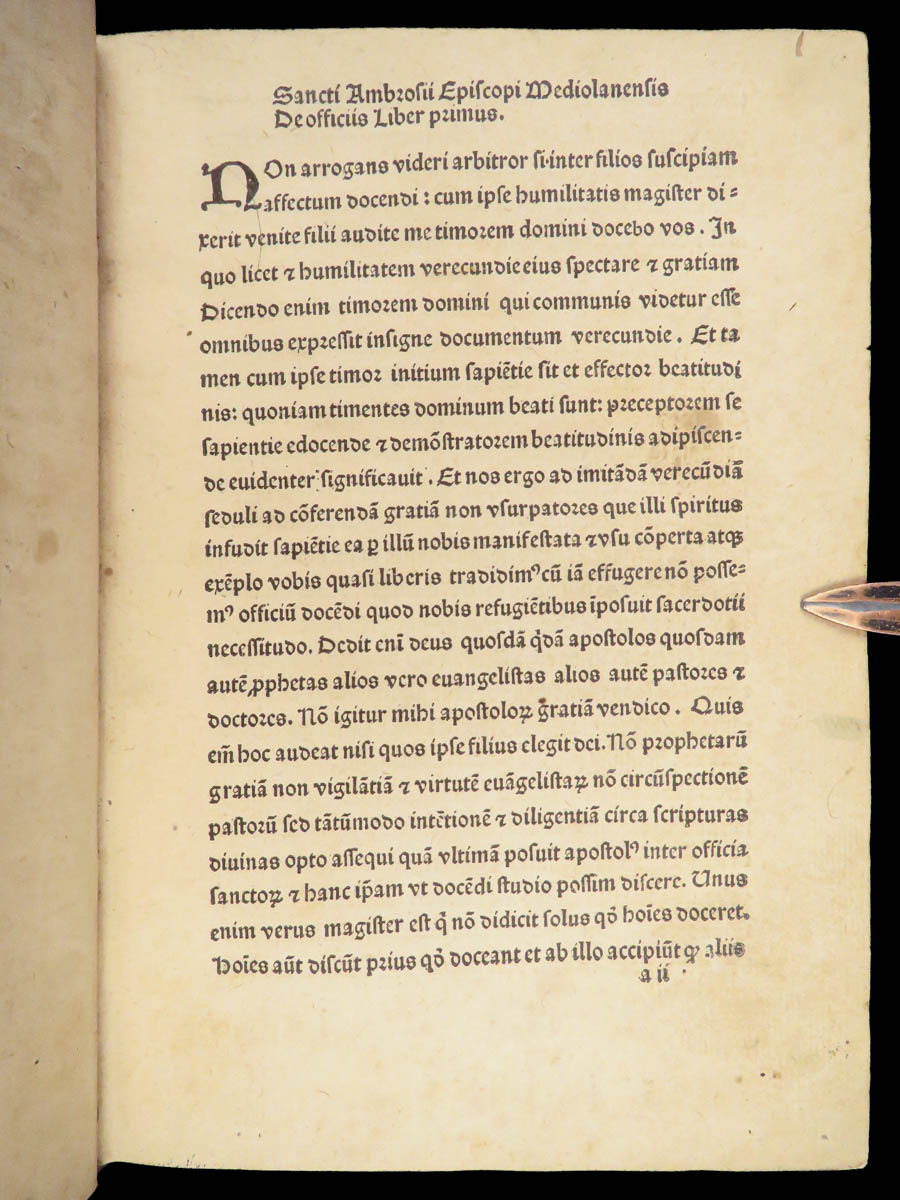 Sancti Ambrosii Episcopi Mediolanensis
De officiis Liber primus.
NOn arrogans videri arbitror si inter filios suscipiam
affectum docendi : cum ipse humilitatis magister di=
xerit venite filii audite me timorem domini docebo vos . In
quo licet ⁊ humilitatem verecundie eius spectare ⁊ gratiam
Dicendo enim timorem domini qui communis videtur esse
omnibus expressit insigne documentum verecundie . Et ta
men cum ipse timor initium sapiẽtie sit et effector beatitudi
nis: quoniam timentes dominum beati sunt: preceptorem se
sapientie edocende ⁊ demõstratorem beatitudinis adipiscen=
de euidenter significauit . Et nos ergo ad imitãdã verecũdiã
seduli ad cõferendã gratiã non vsurpatores que illi spiritus
infudit sapiẽtie ea ꝑ illũ nobis manifestata ⁊ vsu cõperta atqꝫ
exẽplo vobis quasi liberis tradidimꝰ cũ iã effugere nõ posse=
mꝰ officiũ docẽdi quod nobis refugiẽtibus ĩposuit sacerdotii
necessitudo. Dedit enĩ deus quosdã q̃dã apostolos quosdam
autẽ ꝓphetas alios vero euangelistas alios autẽ pastores ⁊
doctores. Nõ igitur mihi apostoloꝝ gratiã vendico . Quis
em̃ hoc audeat nisi quos ipse filius elegit dei. Nõ prophetarũ
gratiã non vigilãtiã ⁊ virtutẽ euãgelistaꝝ nõ circũspectionẽ
pastorũ sed tãtũmodo intẽtionẽ ⁊ diligentiã circa scripturas
diuinas opto assequi quã vltimã posuit apostolꝰ inter officia
sanctoꝝ ⁊ hanc ip̃am vt docẽdi studio possim discere. Unus
enim verus magister est q̃ nõ didicit solus qõ hoĩes doceret.
Hoĩes aũt discũt prius qõ doceant et ab illo accipiũt qꝫ aliis
a ii